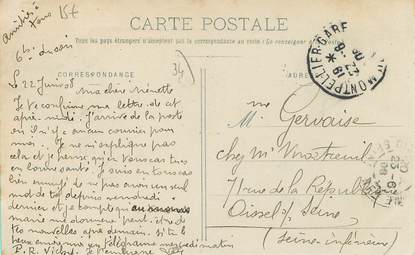 Amitiés à
tous
15t
6h. du soir
CARTE POSTALE
Tous les pays étrangers n'acceptent pas la correspondance au recto (Se renseigner
CORRESPONDANCE
ADRESSE
34
MONTPELLIER-GARE
L 22 Juin 08 Ma chère Ménette
Je te confirme ma lettre de cet
après-midi. J'arrive de la poste
où il n'y a aucun courrier pour
moi. Je ne m'explique pas
cela et je pense qu'en tous cas tu es
en bonne santé. Je suis en tous cas
bien ennuyé de ne pas avoir un seul
mot de toi depuis vendredi
dernier et je compte
Marie me donnera peut-être de
tes nouvelles après demain. Si tu le
peux envoie-moi un télégramme mercredi matin
P. R. Je t'embrasse
Mme
M. Gervaise
chez Mr Montreuil
71 rue de la République
Oissel s/ Seine
(Seine-inférieure)